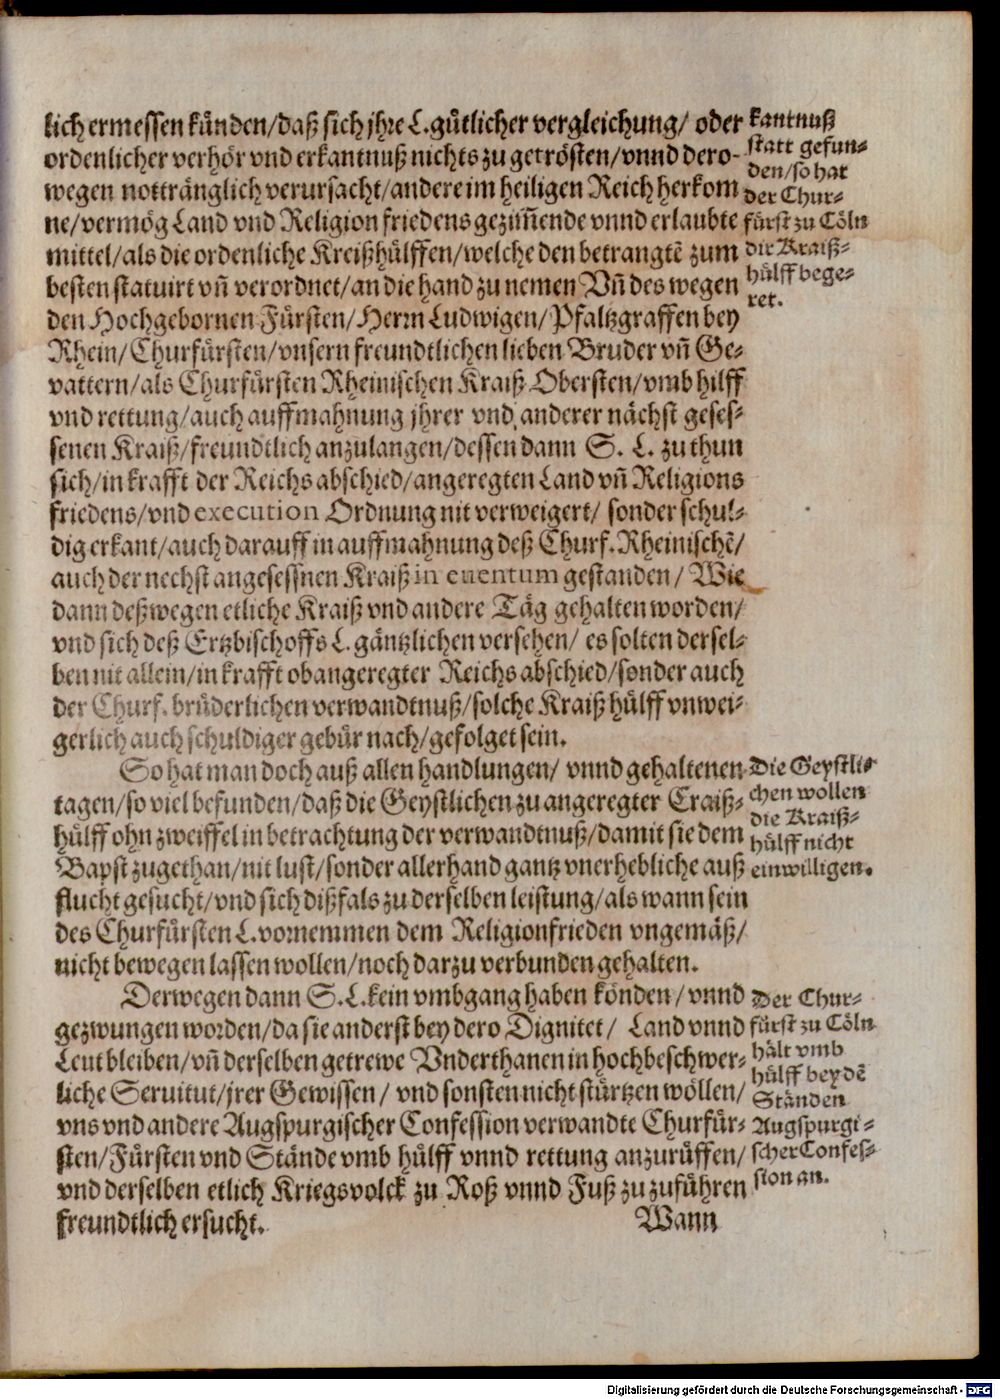 lich ermessen künden/daß sich jhre L. gütlicher vergleichung/ oder
ordenlicher verhör vnd erkantnuß nichts zu getrösten/vnnd dero-
wegen nottränglich verursacht/andere im heiligen Reich herkom
ne/vermög Land vnd Religion friedens gezim̃ende vnnd erlaubte
mittel/als die ordenliche Kreißhülffen/welche den betrangtẽ zum
besten statuirt vñ verordnet/an die hand zu nemen Vñ des wegen
den Hochgebornen Fürsten/Herrn Ludwigen/Pfaltzgraffen bey
Rhein/Churfürsten/vnsern freundtlichen lieben Bruder vñ Ge-
vattern/als Churfürsten Rheinischen Kraiß Obersten/vmb hilff
vnd rettung/auch auffmahnung jhrer vnd anderer nächst geses-
senen Kraiß/freundtlich anzulangen/dessen dann S. L. zu thun
sich/in krafft der Reichs abschied/angeregten Land vñ Religions
friedens/vnd execution Ordnung nit verweigert/ sonder schul-
dig erkant/auch darauff in auffmahnung deß Churf. Rheinischẽ/
auch der nechst angesessnen Kraiß in euentum gestanden/ Wie
dann deßwegen etliche Kraiß vnd andere Täg gehalten worden/
vnd sich deß Ertzbischoffs L. gäntzlichen versehen/ es solten dersel-
ben nit allein/in krafft obangeregter Reichs abschied/sonder auch
der Churf. brüderlichen verwandtnuß/solche Kraiß hülff vnwei-
gerlich auch schuldiger gebür nach/gefolget sein.
kantnuß
statt gefun-
den/so hat
der Chur-
fürst zu Cöln
die Kraiß-
hülff bege-
ret.
So hat man doch auß allen handlungen/ vnnd gehaltenen
tagen/so viel befunden/daß die Geystlichen zu angeregter Craiß-
hülff ohn zweiffel in betrachtung der verwandtnuß/damit sie dem
Bapst zugethan/nit lust/sonder allerhand gantz vnerhebliche auß
flucht gesucht/vnd sich dißfals zu derselben leistung/als wann sein
des Churfürsten L. vornemmen dem Religionfrieden vngemäß/
nicht bewegen lassen wollen/noch darzu verbunden gehalten.
Die Geystli-
chen wollen
die Kraiß-
hülff nicht
einwilligen.
Derwegen dann S. L. kein vmbgang haben könden/vnnd
gezwungen worden/da sie anderst bey dero Dignitet/ Land vnnd
Leut bleiben/vñ derselben getrewe Vnderthanen in hochbeschwer-
liche Seruitut/jrer Gewissen/ vnd sonsten nicht stürtzen wöllen/
vns vnd andere Augspurgischer Confession verwandte Churfür-
sten/Fürsten vnd Stände vmb hülff vnnd rettung anzurüffen/
vnd derselben etlich Kriegsvolck zu Roß vnnd Fuß zu zuführen
freundtlich ersucht.
Der Chur-
fürst zu Cöln
hält vmb
hülff bey dẽ
Ständen
Augspurgi-
scher Confes-
sion an.
Wann
Digitalisierung gefördert durch die Deutsche Forschungsgemeinschaft - DFG